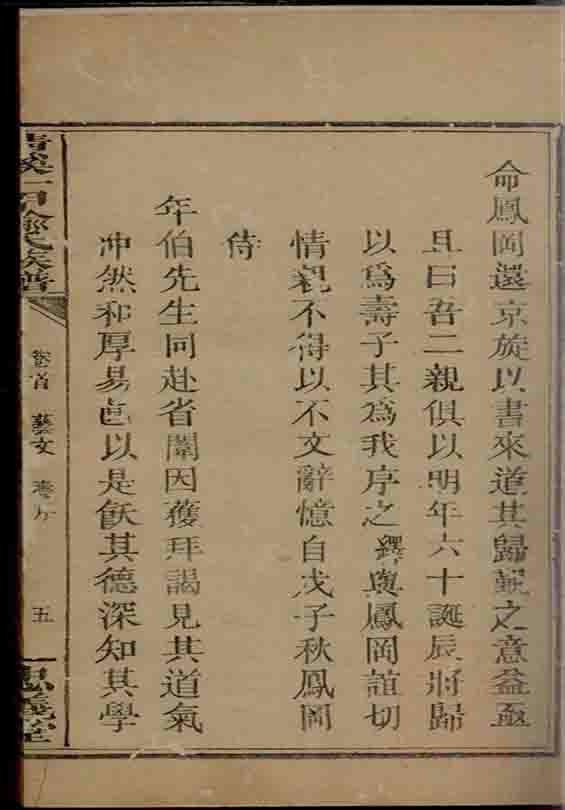 命鳳岡還京旋以書來道其歸覲之意益亟
且曰吾二親俱以明年六十誕辰將歸
以為壽子其為我序之鐸與鳳岡誼切
情親不得以不文辭憶自戊子秋鳳岡
侍
年伯先生同赴省闈因獲拜謁見其道氣
冲然和厚易直以是飫其德深知其學
氏族譜
卷首 藝文 壽序 五
忠義堂